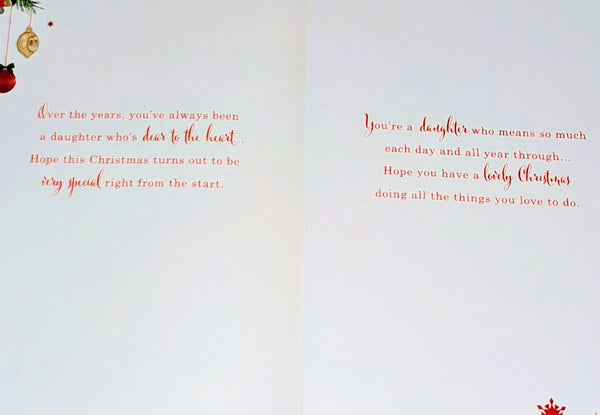 Over the years, you've always been
a daughter who's dear to the heart..
Hope this Christmas turns out to be
very special right from the start.
You're a daughter who means so much
each day and all year through...
Hope you have a lovely Christmas
doing all the things you love to do.